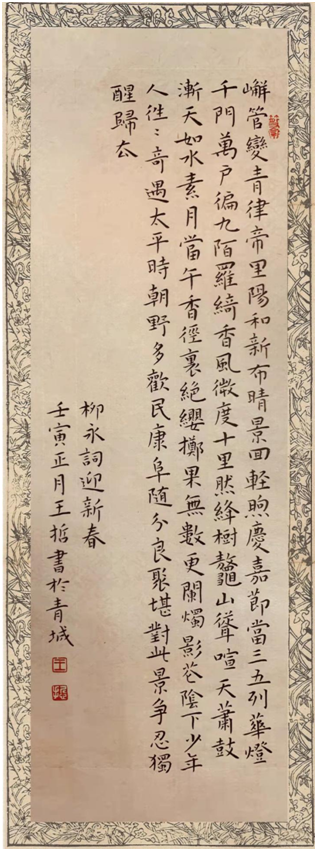 嶰管變青律帝里陽和新布晴景回輕煦慶嘉節當三五列華燈
千門萬戶徧九陌羅綺香風微度十里然絳樹鼇山聳喧天蕭鼓
漸天如水素月當午香徑裏絕纓擲果無數更闌燭影花陰下少年
人徃〻奇遇太平時朝野多歡民康阜隨分良聚堪對此景爭忍獨
醒歸厺
柳永詞迎新春
壬寅正月王哲書於青城
王
哲